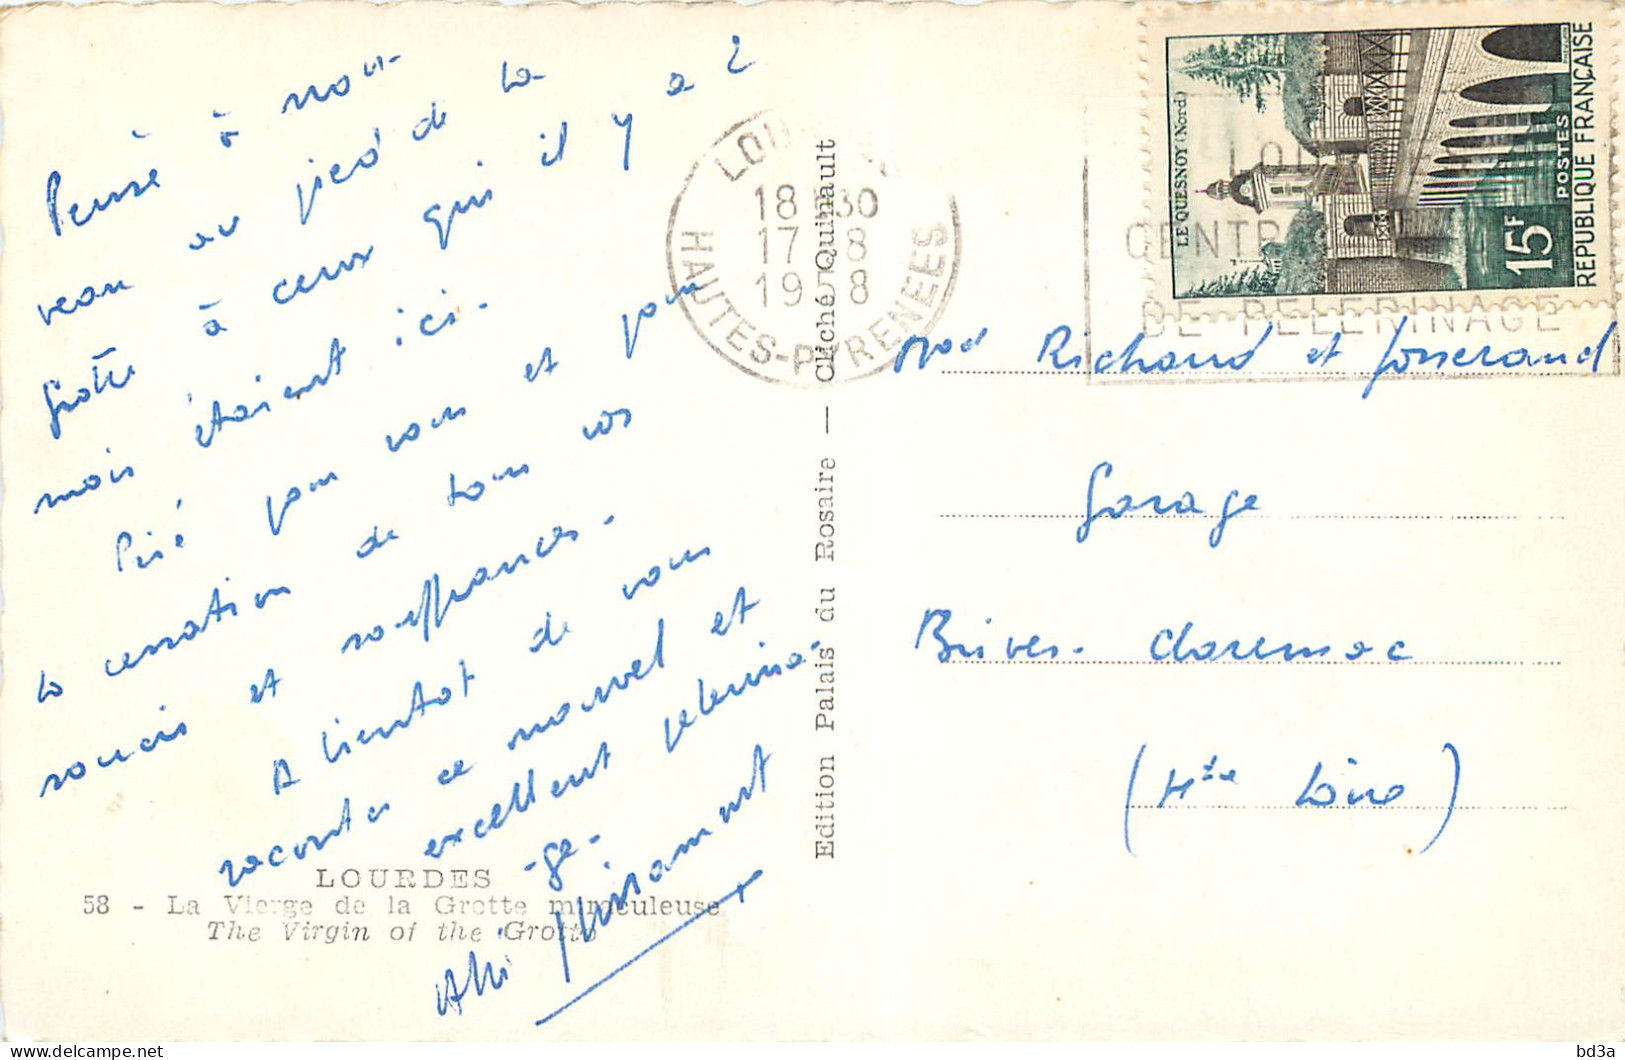 Pensé à nou-
veau au pied de la
grotte à ceux qui il y a 2
mois étaient ici.
Prié pour vous et pour
la cessation de tous vos
soucis et souffrances.
A bientôt de vous
raconter ce nouvel et
excellent pelerina-
-ge-
LOURDES
58 - La Vierge de la Grotte miraculeuse
The Virgin of the Grotto
Edition Palais du Rosaire — Cliché Quinault
LOU
18 30
17 8
19 8
HAUTES-PYRENEES
LOU
CENTR
DE PELERINAGE
LE QUESNOY (Nord)
15F
POSTES
REPUBLIQUE FRANÇAISE
Richaud et Josserand
Garage
Brives-Charensac
(Hte Loire)
bd3a